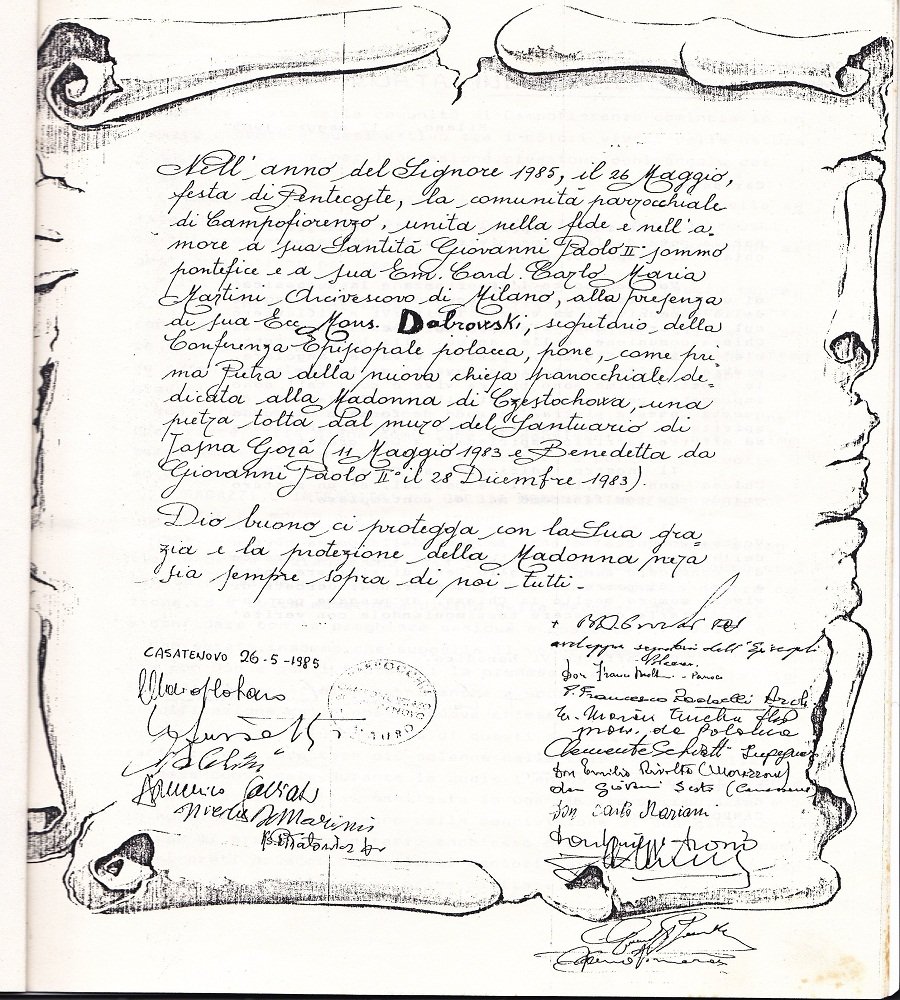 Nell' anno del Signore 1985, il 26 Maggio,
festa di Pentecoste, la comunità parrocchiale
di Campofiorenzo, unita nella fede e nell'a=
more a sua Santità Giovanni Paolo II° sommo
pontefice e a sua Em. Card. Carlo Maria
Martini Arcivescovo di Milano, alla presenza
di sua Ecc Mons. Dabrowski, segretario della
Conferenza Episcopale polacca, pone, come pri
ma Pietra della nuova chiesa parrocchiale de=
dicata alla Madonna di Częstochowa, una
pietra tolta dal muro del Santuario di
Jasna Gorá (11 Maggio 1983 e Benedetta da
Giovanni Paolo II° il 28 Dicembre 1983).
Dio buono ci protegga con la Sua gra=
zia e la protezione della Madonna nera
sia sempre sopra di noi tutti.
CASATENOVO 26-5-1985
segretario dell'Episcopato
P. Francesco
Clemente
Don Emilio Rivolta
don Giovanni Sesto
Don Carlo Mariani